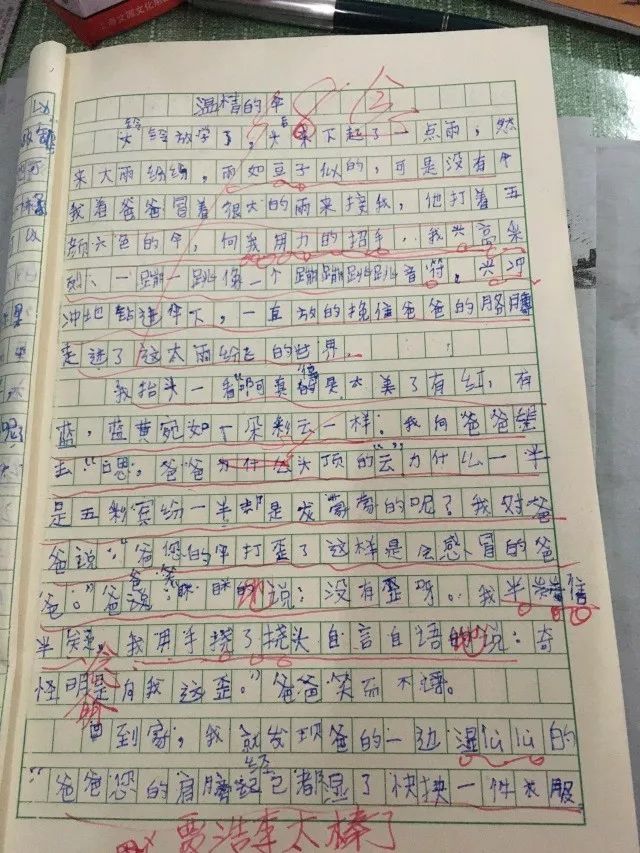 温情的伞
放学了，天下起了一点雨，然
来大雨纷纷，雨如豆子似的，可是没有伞
我看爸爸冒着很大的雨来接我，他打着五
颜六色的伞，向我用力的招手，我兴高采
烈、一蹦一跳像一个蹦蹦跳跳音符，兴冲
冲地钻进伞下，一直放的挽住爸爸的胳膊
走进了这大雨纷飞的世界
我抬头一看啊真是太美了有红，有
蓝，蓝黄宛如一朵彩云一样。我向爸爸
去：“爸爸为什么头顶的“云”为什么一半
是五彩宾纷一半却是灰蒙蒙的呢？我对爸
爸说：“爸您的伞打歪了这样是会感冒的爸
爸。”爸爸笑眯眯的说：没有歪呀。我半信
半疑，我用手挠了挠头自言自语的说：奇
怪明是向我这歪。”爸爸笑而不语。
到家，我就发现爸的一边湿仙仙的
“爸爸您的肩膀已经都湿了快换一件衣服
贾浩李太棒了